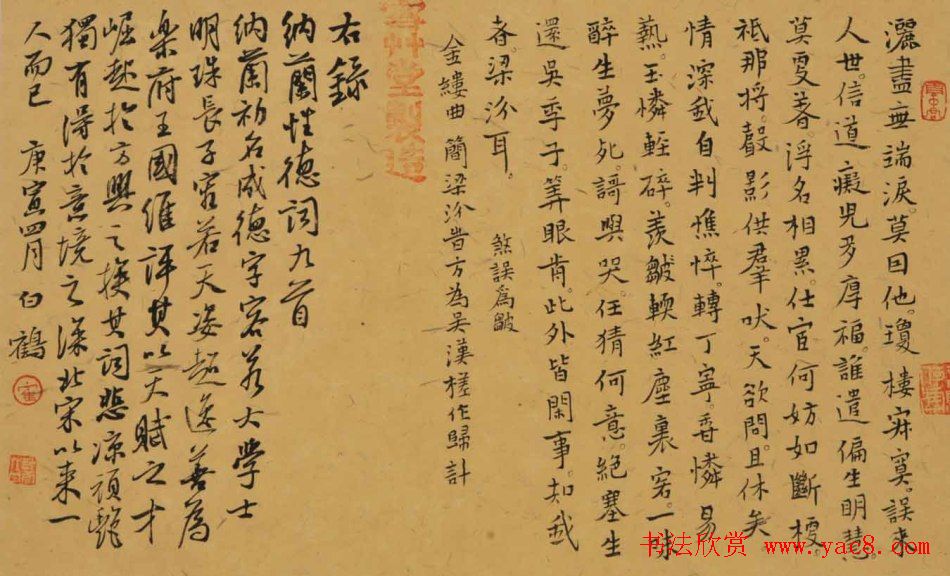 灑盡無端淚。莫因他。瓊樓寂寞。誤來
人世。信道癡兒多厚福。誰遣偏生明慧。
莫更著。浮名相累。仕宦何妨如斷梗。
衹那將。聲影供羣吠。天欲問。且休矣
情深我自判憔悴。轉丁寧。香憐易
爇。玉憐輕碎。羨皺輭紅塵裏客。一味
醉生夢死。謌與哭。任猜何意。絕塞生
還吳季子。筭眼前。此外皆閑事。知我
者。梁汾耳。
煞誤為皺
金縷曲 簡梁汾昔方為吳漢槎作歸計
艸堂製造
右錄
納蘭性德詞九首
納蘭初名成德字容若大學士
明珠長子容若天姿超逸善為
樂府王國維評其以天賦之才
崛起於方興之族其詞悲涼頑艷
獨有得於意境之深北宋以來一
人而已 庚寅四月 白鶴
书法欣赏 www.yac8.com